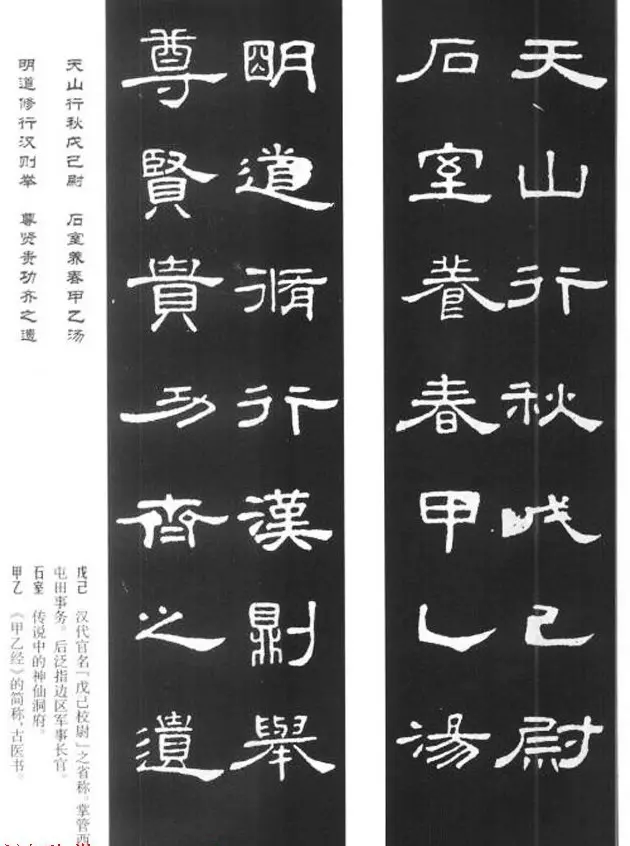 天山行秋戊己尉
石室養春甲乙湯
明道脩行漢劓舉
尊賢貴功齊之遺
天山行秋戊己尉 石室养春甲乙汤
明道修行汉则举 尊贤贵功齐之遗
戊己 汉代官名『戊己校尉』之省称。掌管西
屯田事务。后泛指边区军事长官。
石室 传说中的神仙洞府。
甲乙 《甲乙经》的简称，古医书。